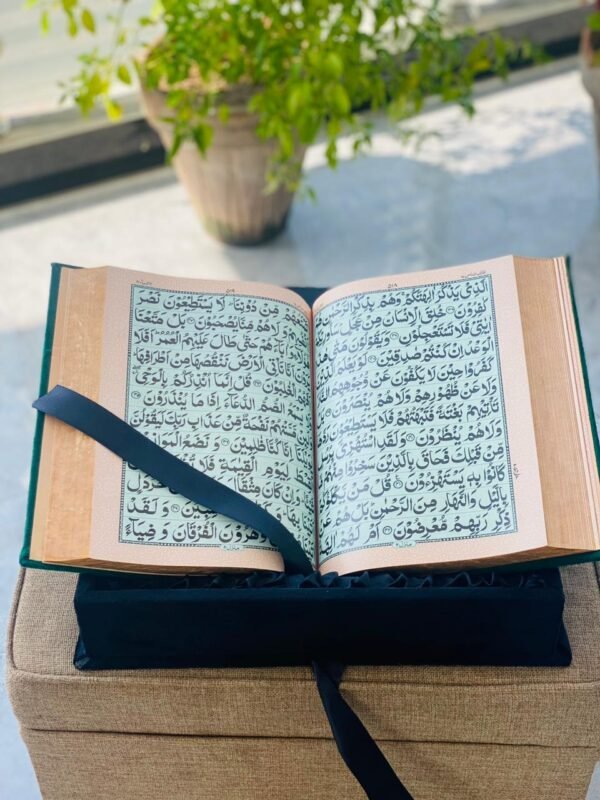 الَّذِىْ يَذْكُرُ اٰلِهَتَكُمْ وَهُمْ بِذِكْرِ
كٰفِرُوْنَ خُلِقَ الْاِنْسَانُ مِنْ عَجَلٍ
اٰيٰتِىْ فَلَا تَسْتَعْجِلُوْنِ وَيَقُوْلُوْنَ مَتٰى
الْوَعْدُ اِنْ كُنْتُمْ صٰدِقِيْنَ لَوْ يَعْلَمُ
كَفَرُوْا حِيْنَ لَا يَكُفُّوْنَ عَنْ وُّجُوْهِهِمُ
وَلَا عَنْ ظُهُوْرِهِمْ وَلَا هُمْ يُنْصَرُوْنَ
تَاْتِيْهِمْ بَغْتَةً فَتَبْهَتُهُمْ فَلَا يَسْتَطِيْعُوْنَ
وَلَا هُمْ يُنْظَرُوْنَ وَلَقَدِ اسْتُهْزِئَ
مِّنْ قَبْلِكَ فَحَاقَ بِالَّذِيْنَ سَخِرُوْا
كَانُوْا بِهٖ يَسْتَهْزِءُوْنَ قُلْ مَنْ
بِالَّيْلِ وَالنَّهَارِ مِنَ الرَّحْمٰنِ بَلْ هُمْ
ذِكْرِ رَبِّهِمْ مُّعْرِضُوْنَ اَمْ لَهُمْ
مِّنْ دُوْنِنَا لَا يَسْتَطِيْعُوْنَ نَصْرَ
وَلَا هُمْ مِّنَّا يُصْحَبُوْنَ بَلْ مَتَّعْنَا
حَتّٰى طَالَ عَلَيْهِمُ الْعُمُرُ اَفَلَا
اَنَّا نَاْتِى الْاَرْضَ نَنْقُصُهَا مِنْ اَطْرَافِهَا
الْغٰلِبُوْنَ قُلْ اِنَّمَا اُنْذِرُكُمْ بِالْوَحْىِ
الصُّمُّ الدُّعَآءَ اِذَا مَا يُنْذَرُوْنَ
نَفْحَةٌ مِّنْ عَذَابِ رَبِّكَ لَيَقُوْلُنَّ
اِنَّا كُنَّا ظٰلِمِيْنَ وَنَضَعُ الْمَوَازِيْنَ
لِيَوْمِ الْقِيٰمَةِ فَلَا
كَانَ مِثْقَالَ خَرْدَلٍ
وَلَقَدْ
وَهٰرُوْنَ الْفُرْقَانَ وَضِيَآءً